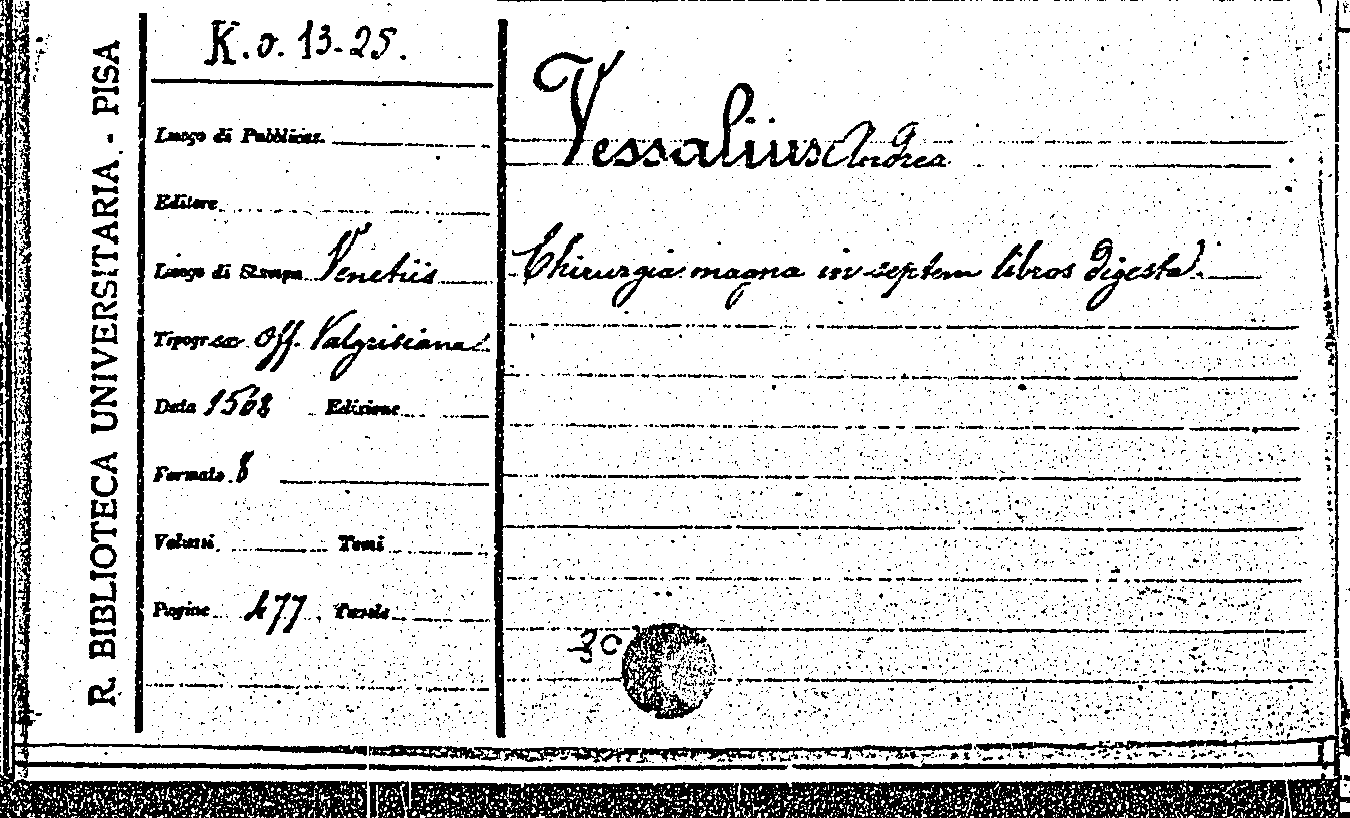 R. BIBLIOTECA UNIVERSITARIA - PISA
K.o. 13-25.
Luogo di Pubblicaz.
Editore
Luogo di Stampa Venetiis
Tipogr. ex Off. Valgrisiana
Data 1568 Edizione
Formato 8
Volumi Tomi
Pagine 477 Tavole
Vessalius Andrea
Chirurgia magna in septem libros digesta.